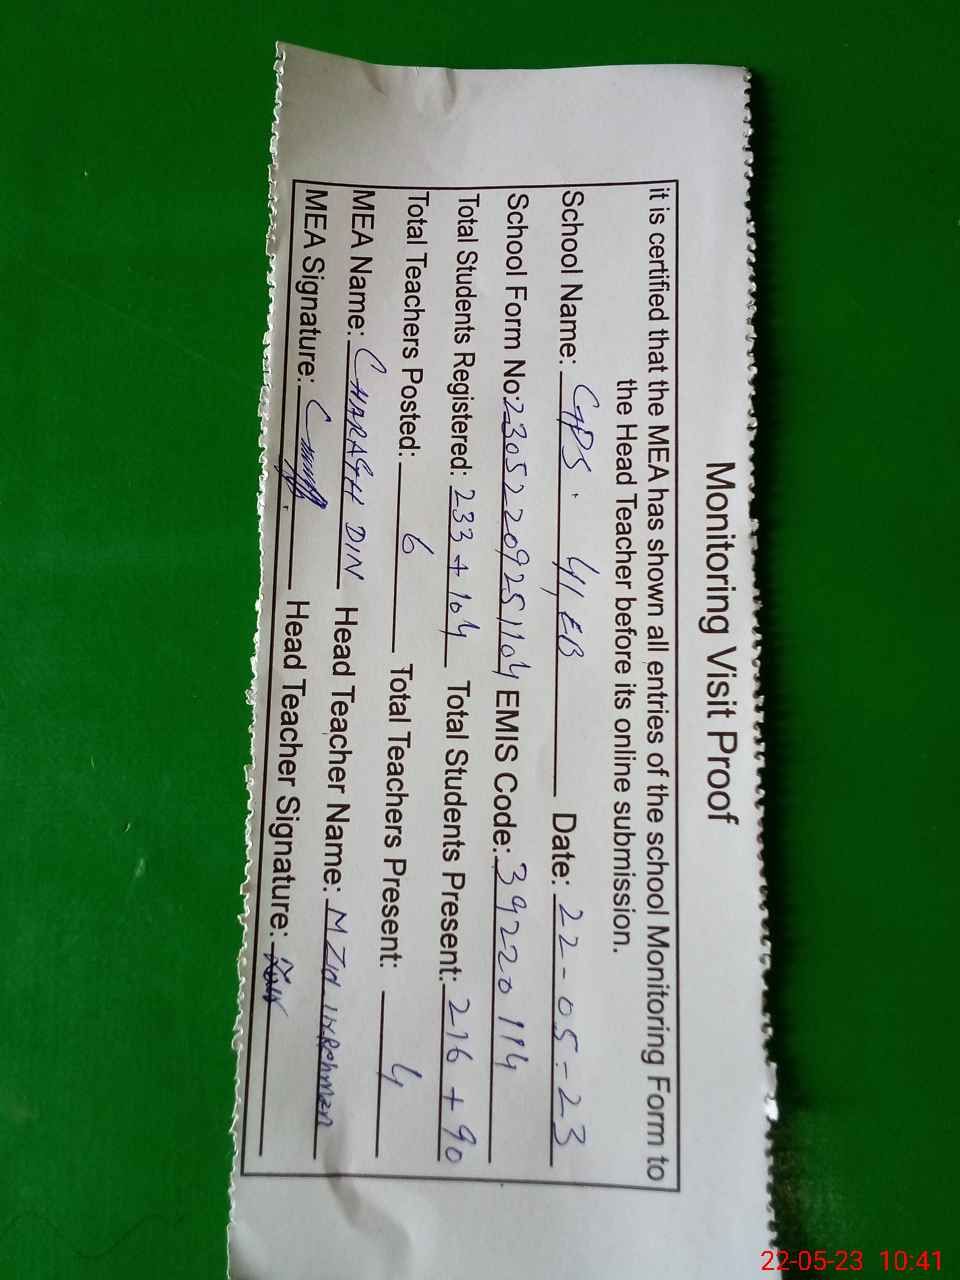 Monitoring Visit Proof
it is certified that the MEA has shown all entries of the school Monitoring Form to
the Head Teacher before its online submission.
School Name: GPS. 41 EB Date: 22-05-23
School Form No: 23052209251104 EMIS Code: 39220114
Total Students Registered: 233 + 104 Total Students Present: 216 + 90
Total Teachers Posted: 6 Total Teachers Present: 4
MEA Name: CHARAGH DIN Head Teacher Name: M Zia
MEA Signature: Head Teacher Signature:
22-05-23 10:41